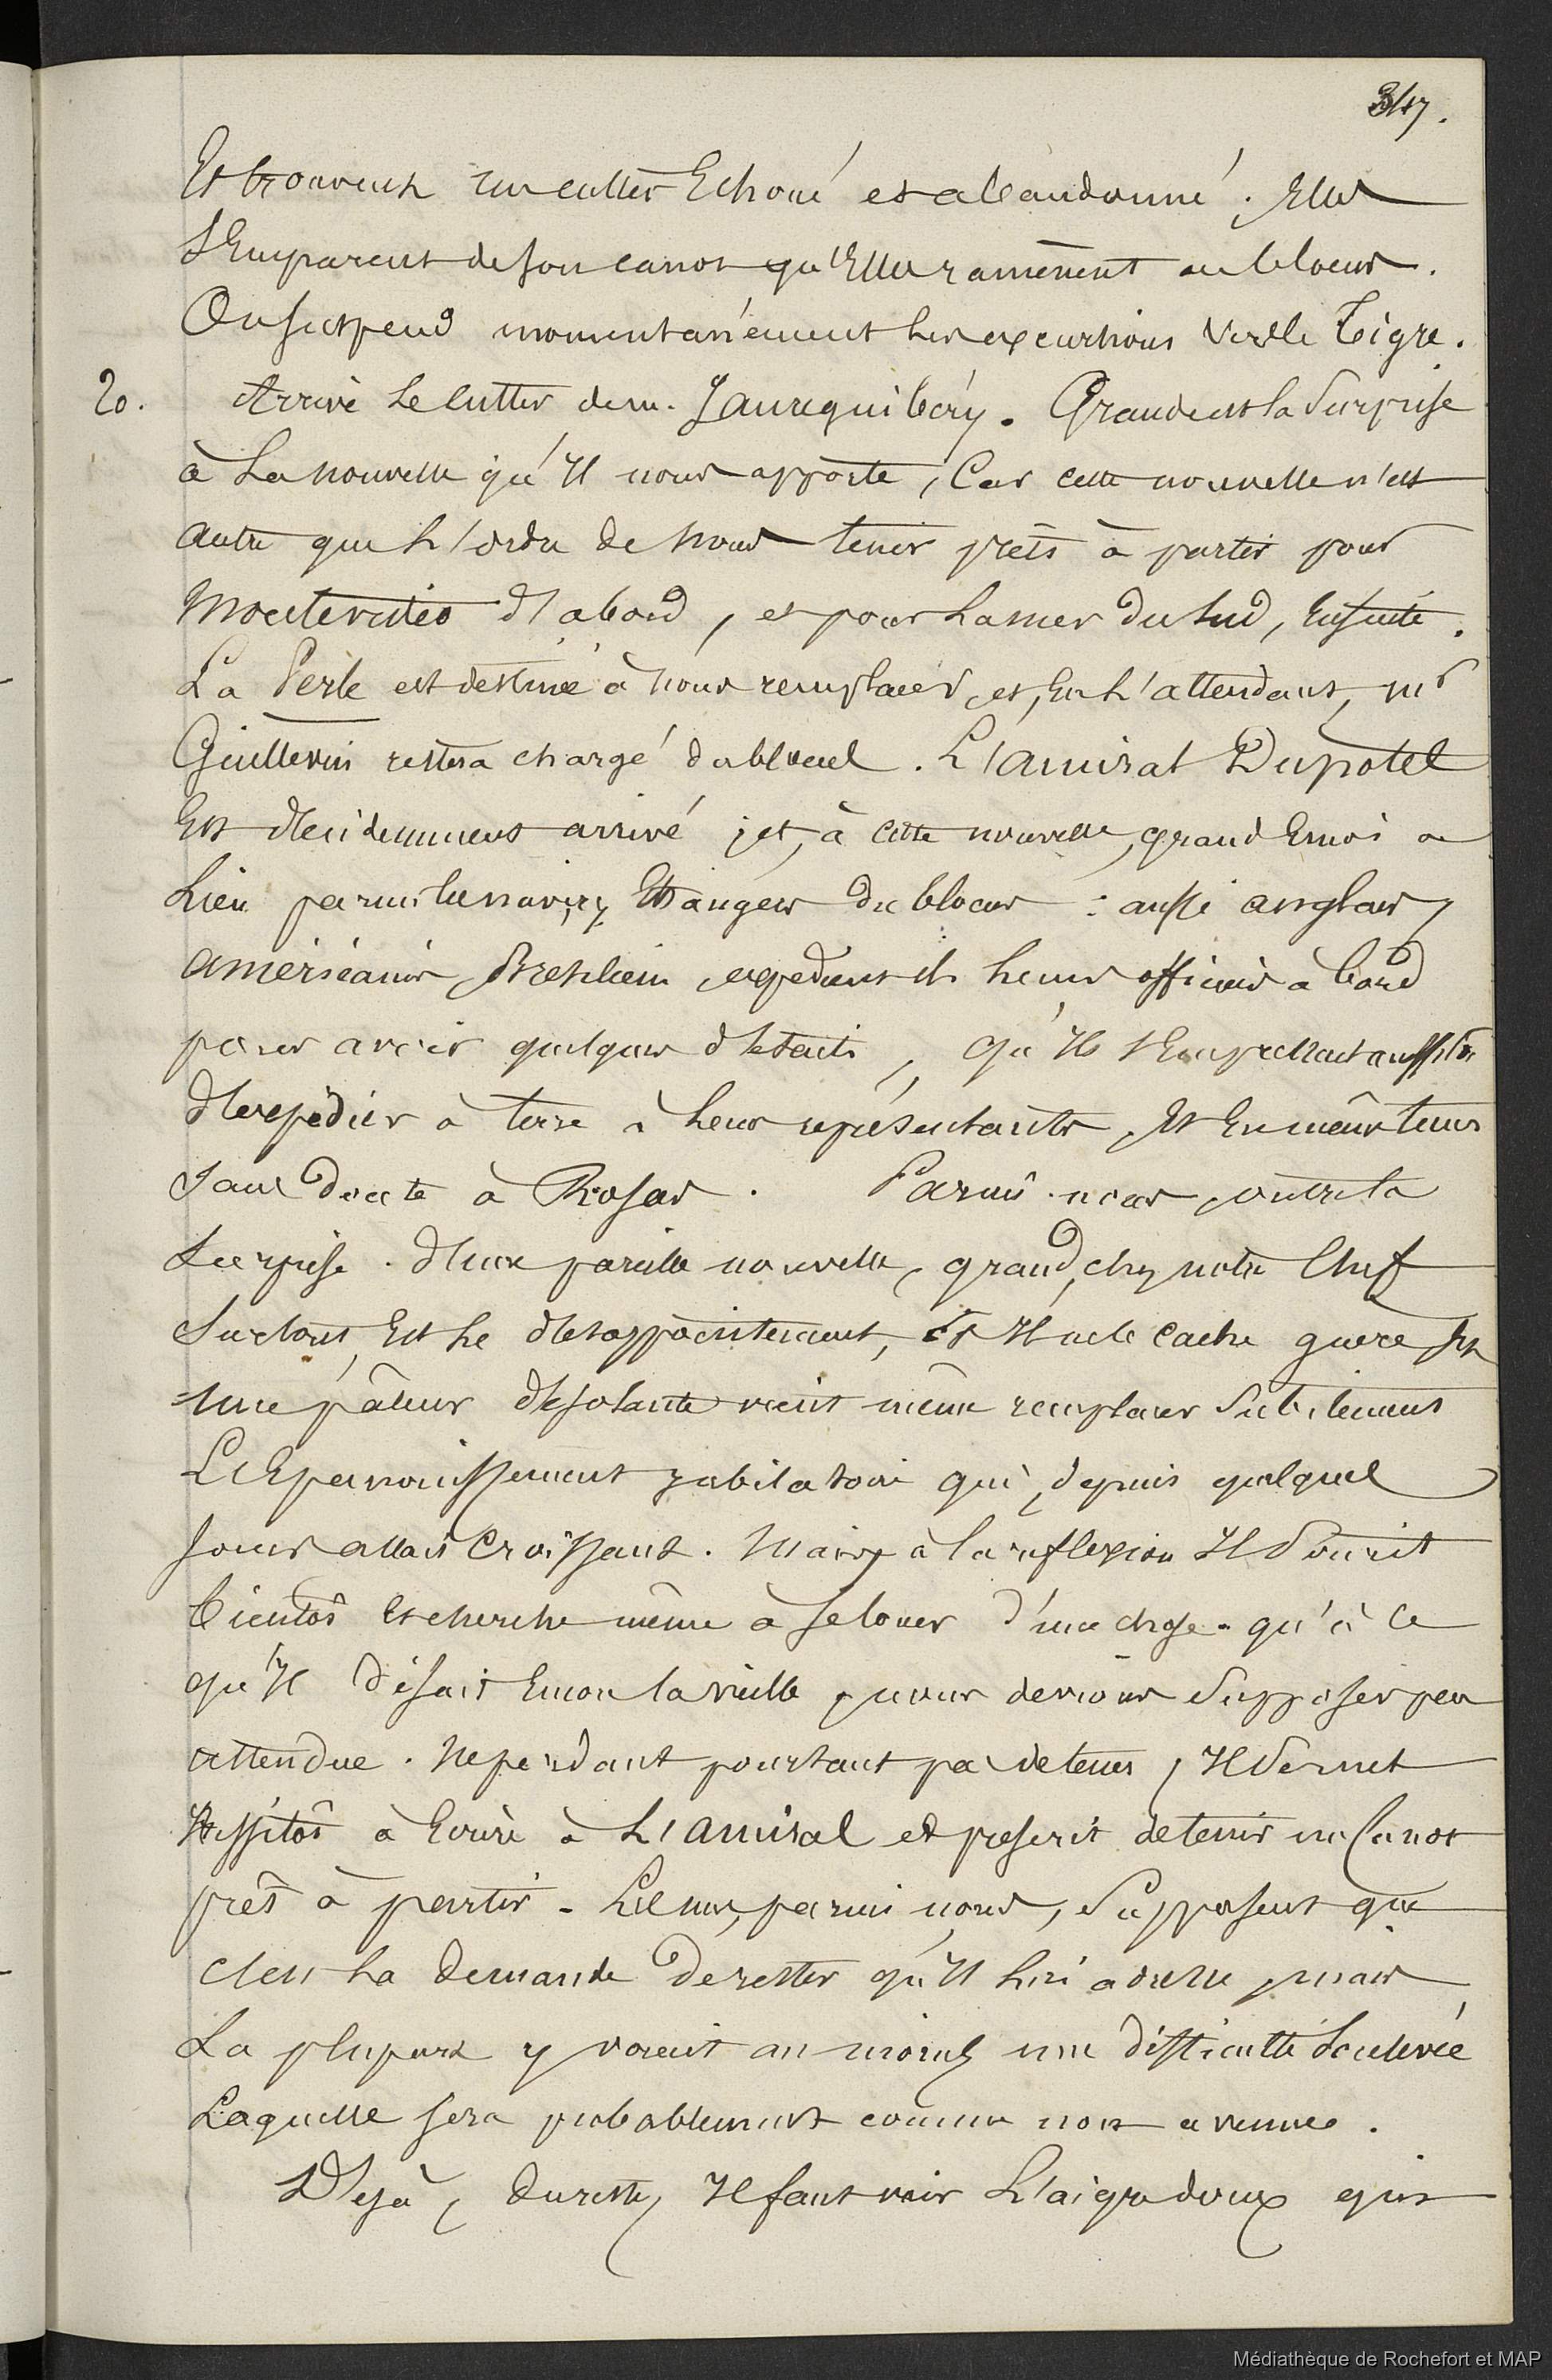 347.
Et trouvent un cutter Echoué et abandonné ; Elles
s'Emparent de son canot qu'Elles ramènent au blocus.
On suspend momentanément les excursions vers le Tigre.
20. Arrive le cutter de m. Jaureguibéry. Grande est la surprise
à la nouvelle qu'Il nous apporte, Car cette nouvelle n'est
autre que l'ordre de nous tenir prêts à partir pour
Montevideo d'abord, et pour la mer du Sud, Ensuite.
La Perle est destinée à nous remplacer, et, En l'attendant, mr
Guillevin restera chargé du blocus. L'amiral Dupotet
Est décidemment arrivé ; et, à cette nouvelle, grand Emoi a
Lieu parmi les navires Etrangers du blocus : aussi anglais,
américains, Brésiliens, expédient-ils leurs officiers à bord
pour avoir quelques détails, qu'Ils s'Empressent aussitôt
d'expédier à terre à leurs représentants, Et En même tems
sans doute à Rosas. Parmi nous, outre la
Surprise d'une pareille nouvelle, grand, chez notre Chef
Surtout, Est le désappointement, Et Il ne le cache guère
une pâleur désolante vient même remplacer Subitement
L'Epanouissement jubilatoire qui, depuis quelques
jours allait Croissant. Mais, à la reflexion Il Sourit
bientôt Et cherche même à se louer d'une chose qu'à ce
qu'Il disait Encore la veille, nous devions Supposer peu
attendue. Ne perdant pourtant pas de tems, Il Se met
aussitôt à Ecrire à L'amiral et prescrit de tenir un Canot
prêt à partir. Les uns, parmi nous, Supposent que
c'est la demande de rester qu'Il lui adresse, mais
La plupart y voient au moins une difficulté Soulevée
Laquelle sera probablement comme non avenue.
Déjà, du reste, Il faut voir L'aigre doux qui
Médiathèque de Rochefort et MAP